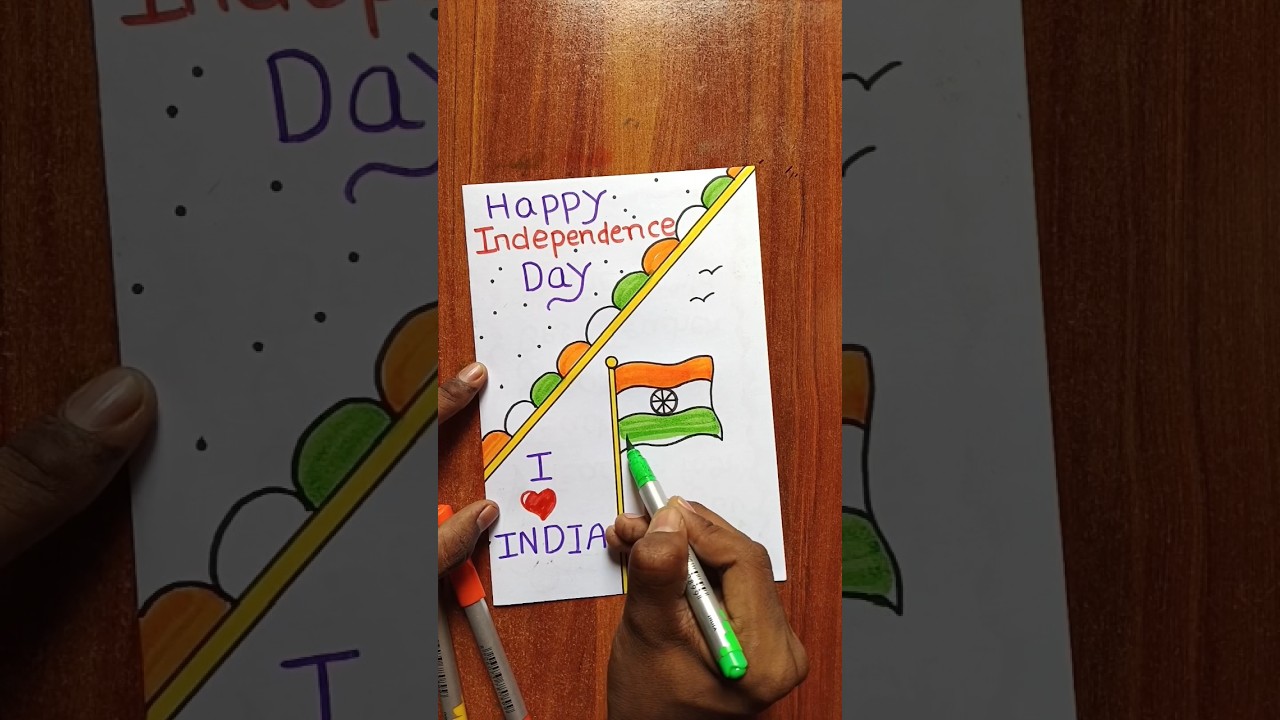 Happy
Independence
Day
I
INDIA